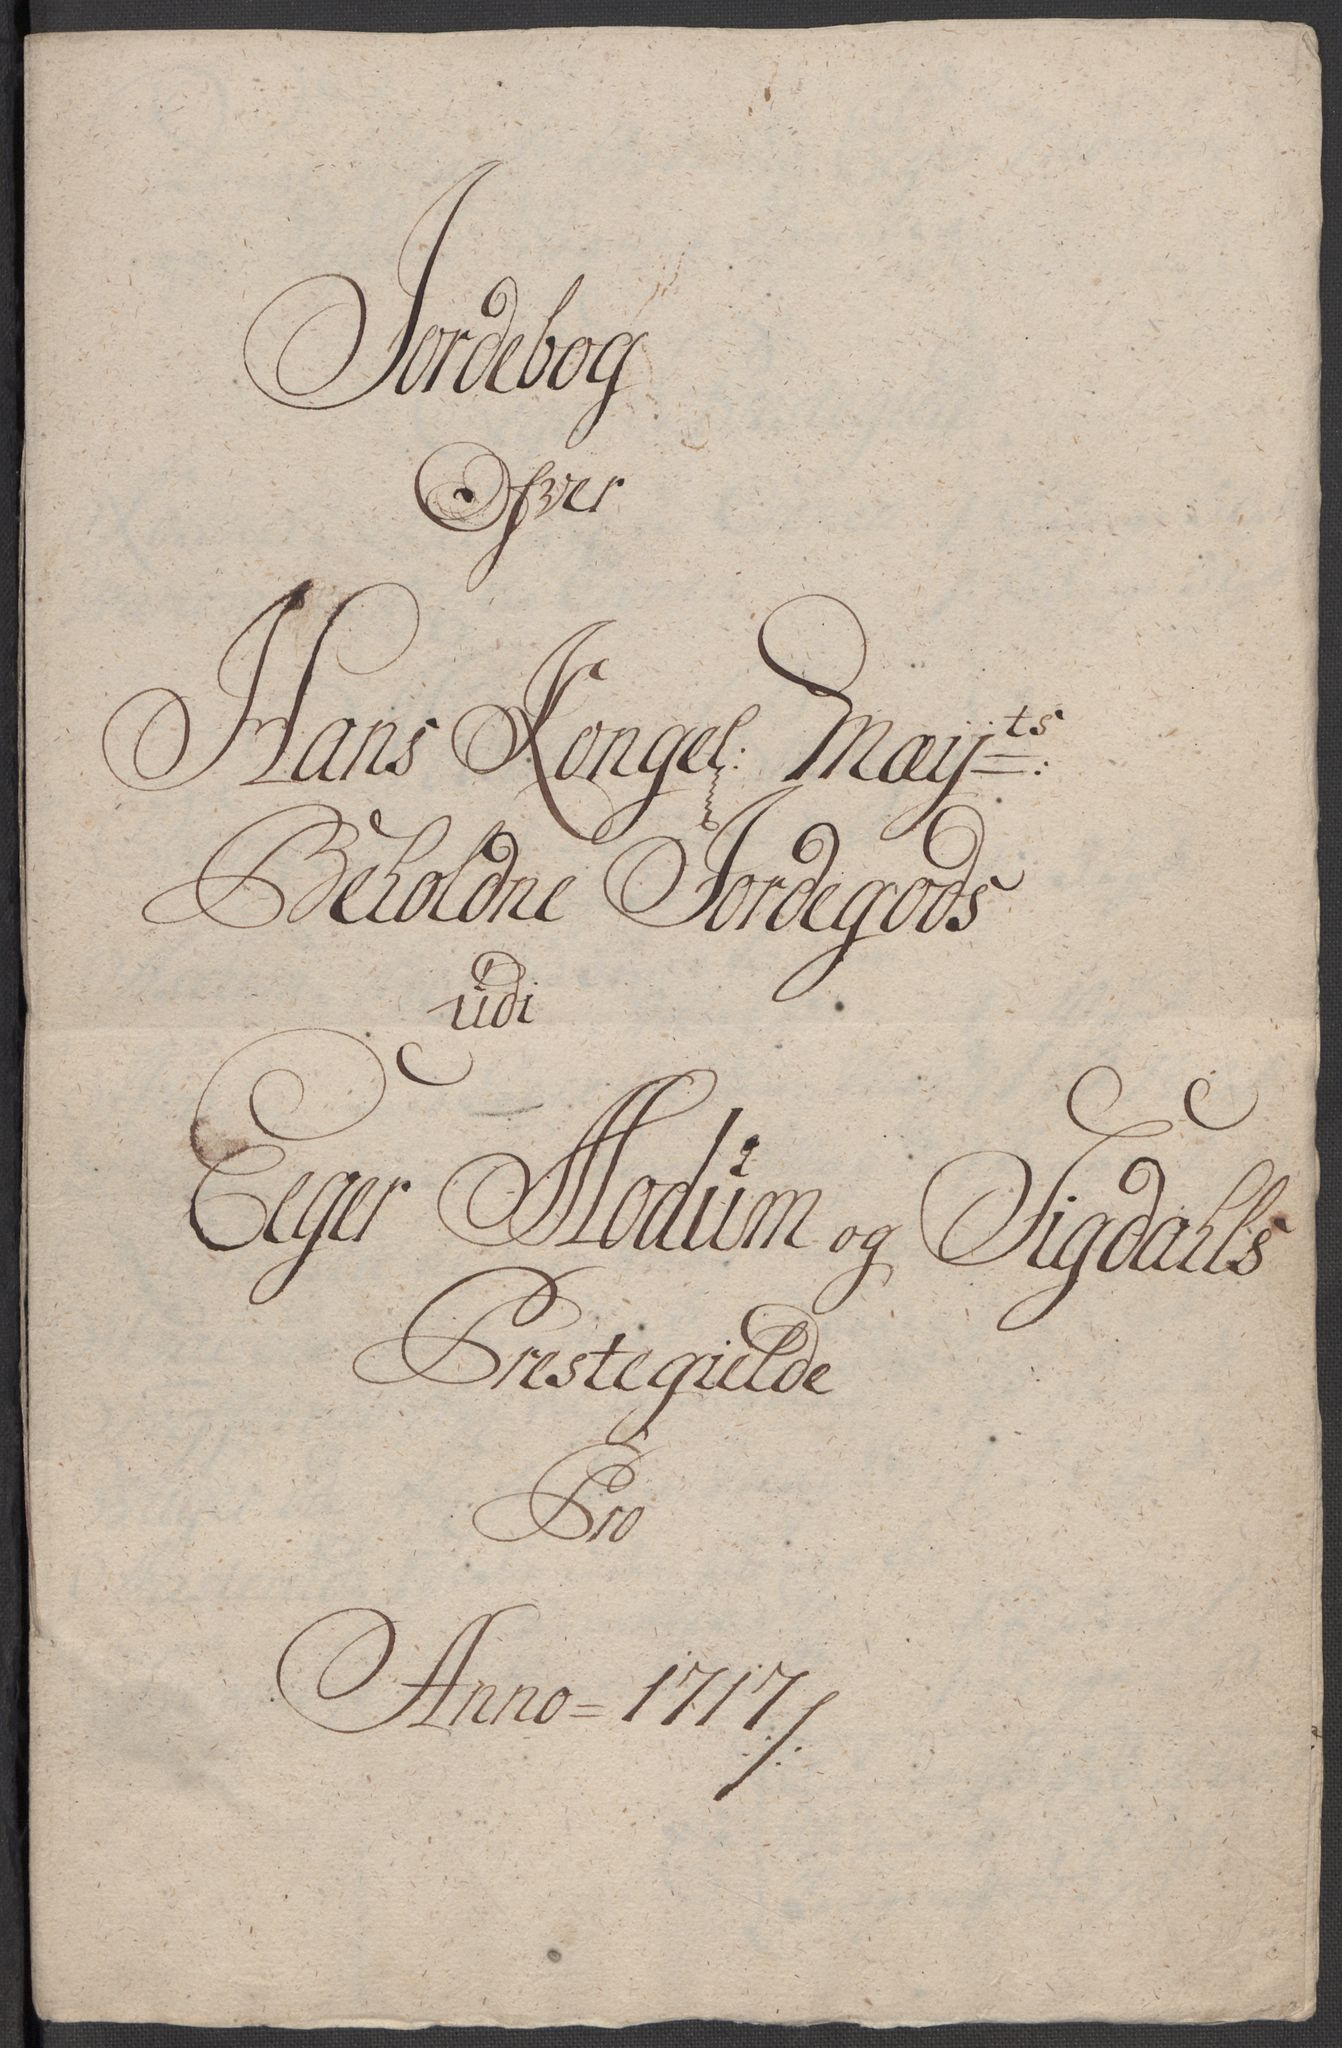 Jordebog
Ofver
Hans Kongel: Maÿ^ts:
Beholdne Jordegods
udi
Eeger Modum og Sigdahls
Prestegielde
Pro
Anno = 1717 /